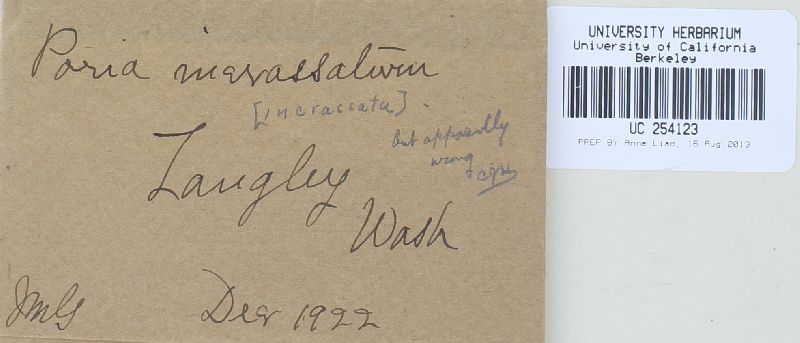 Poria incrassatum
[incrassata].
but apparently
wrong
Langley
Wash
JMG Dec 1922
UNIVERSITY HERBARIUM
University of California
Berkeley
UC 254123
PREP BY Anne Liao, 16 Aug 2013